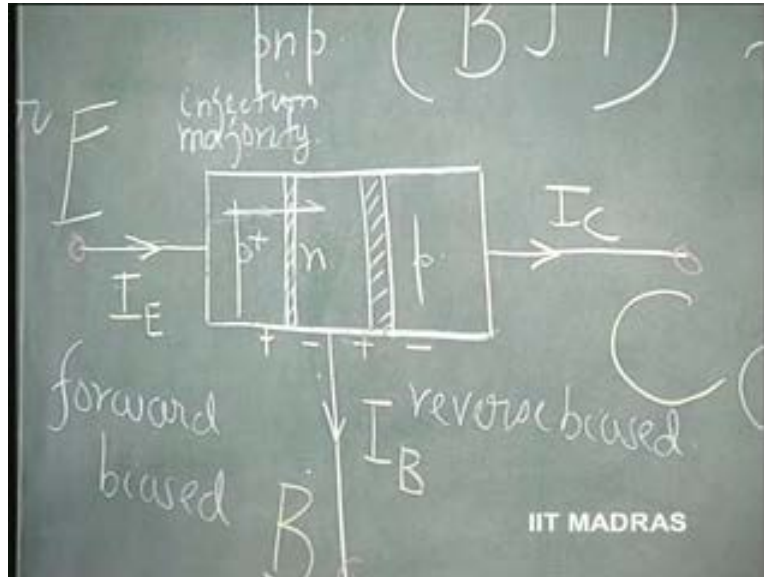 pnp (BJT)
injection
majority.
E
p+ n p
I_E
I_C
C
+ - + -
forward
biased
reverse biased.
I_B
B
IIT MADRAS